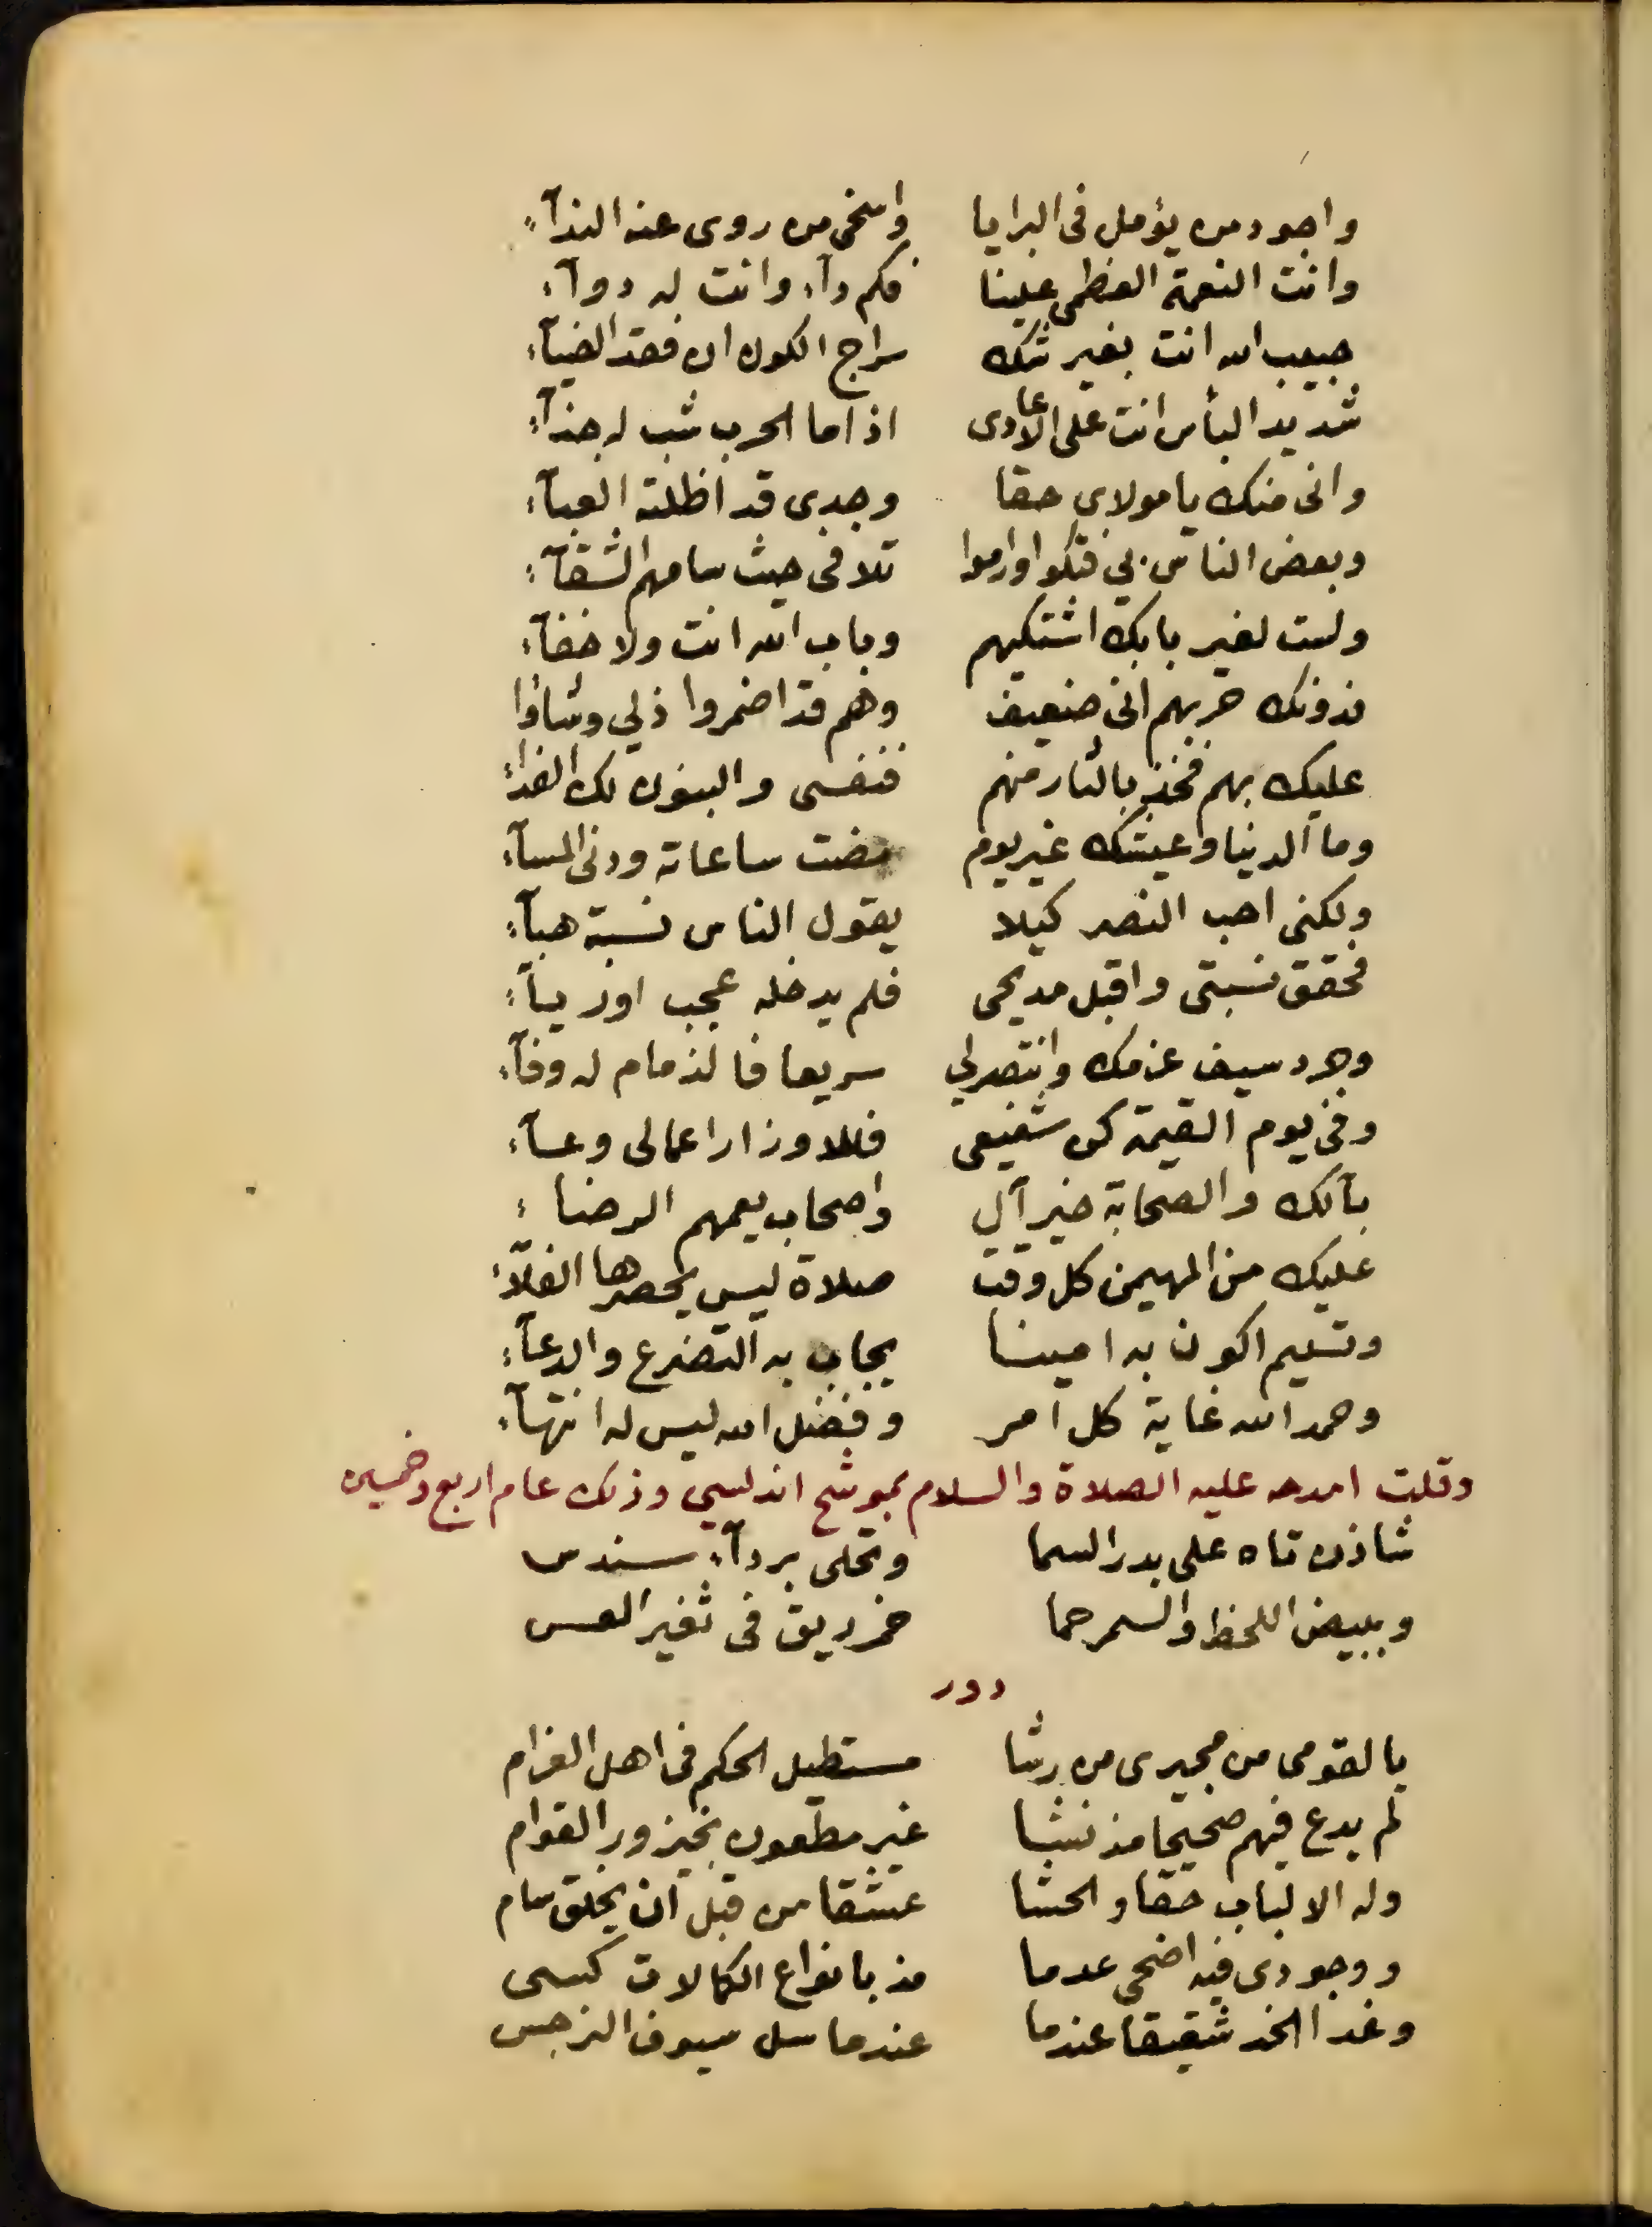 واجود من يؤمل في البرايا واسخى من روى عنه الندآء
وانت النعمة العظمى علينا فكم دآء وانت له دوآء
حبيب الله انت بغير شك سراج الكون ان فقد الضيآء
شديد البأس انت على الاعادى اذا ما الحرب شب له جذآء
وانى منك يا مولاى حقا وجدى قد اظلته العبآء
وبعض الناس بي فتكوا وراموا تلافى حيث سامهم الشقآء
ولست لغير بابك اشتكيهم وباب الله انت ولا خفآء
فدونك حربهم انى ضعيف وهم قد اضمروا ذلي وشاؤا
عليك بهم فخذ بالثار منهم فنفسى والبنون لك الفدآء
وما الدنيا وعيشك غير يوم مضت ساعاته ودنى المسآء
ولكنى احب النصر كيلا يقول الناس نسبته هبآء
فحقق نسبتى واقبل مديحى فلم يدخله عجب او ريآء
وجرد سيف عزمك وانتصر لي سريعا فالذمام له وفآء
وفى يوم القيمة كن شفيعى فللاوزار اعمالى وعآء
بآلك والصحابة خير آل واصحاب يعمهم الرضاء
عليك من المهيمن كل وقت صلاة ليس يحصرها الفلآء
وتسليم اكون به امينا يجاب به التضرع والدعآء
وحمد الله غاية كل امر وفضل الله ليس له انتهآء
وقلت امدحه عليه الصلاة والسلام بموشح اندلسي وذلك عام اربع وخمسين
شاذن تاه على بدر السما وتحلى بردآء سندس
وببيض اللحظ والسمر حما خمر ريق فى ثغير العس
دور
يا لقومى من مجيرى من رشا مستطيل الحكم فى اهل الغرام
لم يدع فيهم صحيحا مذ نشا غير مطعون بخيزور القوام
وله الالباب حقا والحشا عشقا من قبل ان يخلق سام
ووجودى فيه اضحى عدما مذ بانواع الكمالات كسى
وغدا الخد شقيقا عندما عندما سل سيوف النرجس